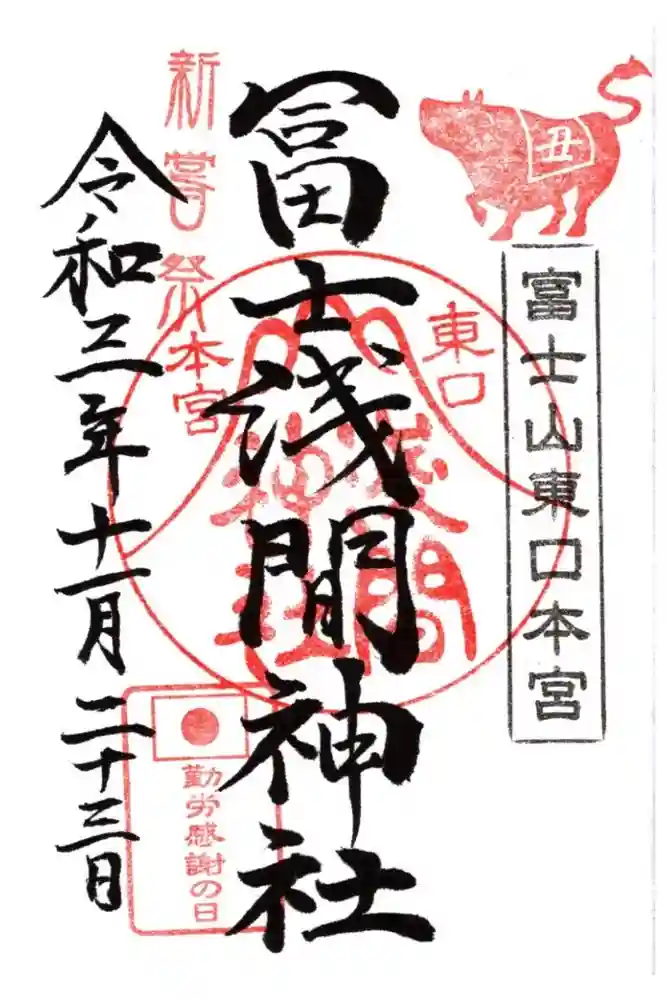 丑
富士山東口本宮
冨士浅間神社
東口
本宮
浅間
神社
新嘗祭
令和三年十一月二十三日
勤労感謝の日